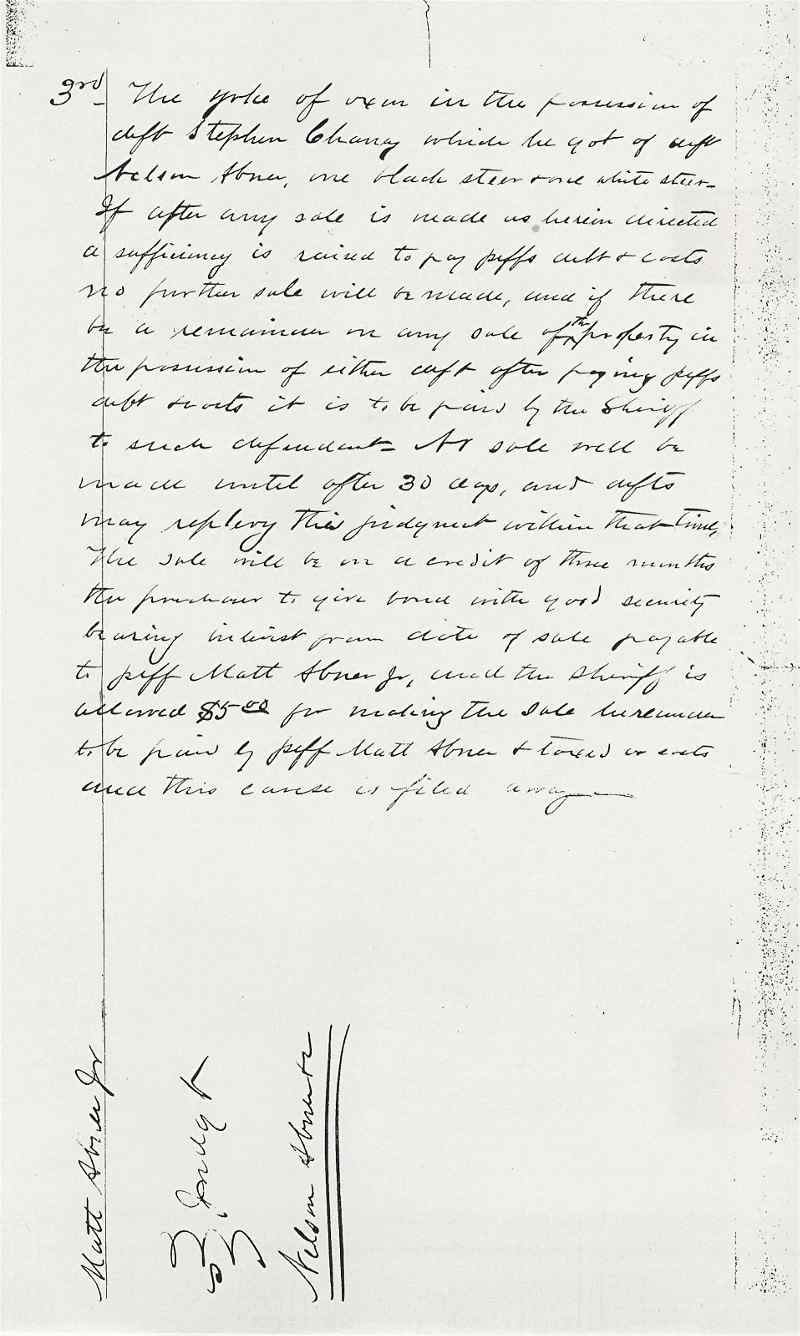 3rd The yoke of oxen in the possession of
deft Stephen Chaney which he got of deft
Nelson Abner, one black steer & one white steer-
If after any sale is made as herein directed
a sufficiency is raised to pay plffs debt & costs
no further sale will be made, and if there
be a remainder on any sale of the property in
the possession of either deft after paying plffs
debt & costs it is to be paid by the Sheriff
to such defendant- No sale will be
made until after 30 days, and defts
may replevy this judgment within that time,
The sale will be on a credit of three months
the purchaser to give bond with good security
bearing interest from date of sale payable
to plff Matt Abner Jr, and the Sheriff is
allowed $5 00 for making the sale hereunder
to be paid by plff Matt Abner & taxed as costs
and this cause is filed away—
Matt Abner Jr
Judgt
Nelson Abner &c